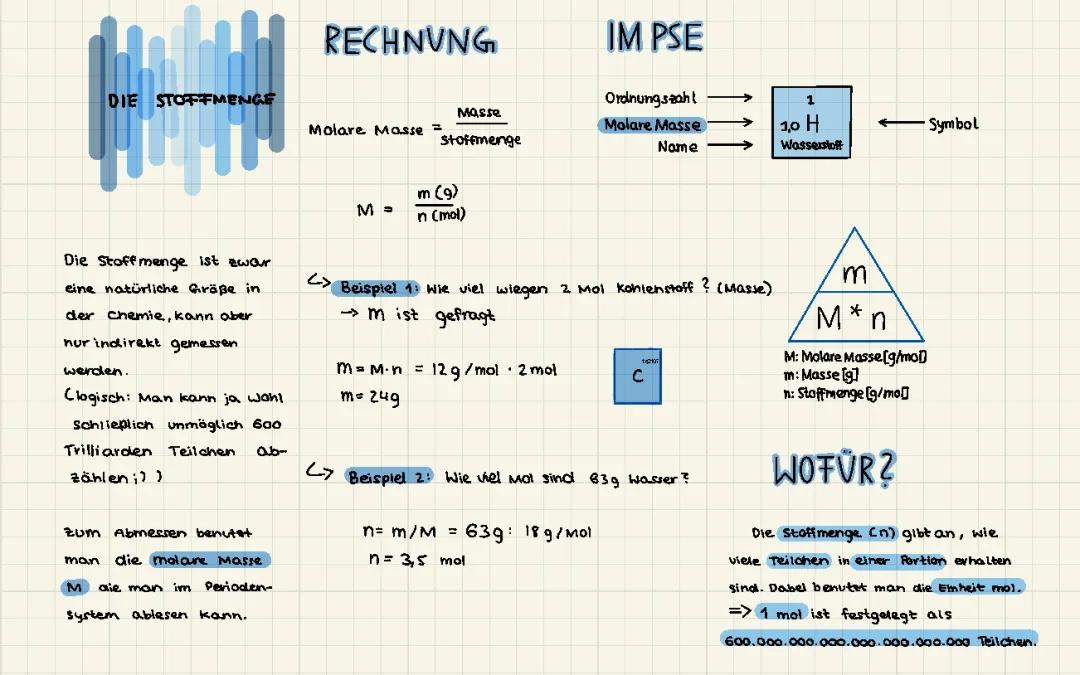 DIE STOFFMENGE
Die Stoffmenge ist zwar
eine natürliche Größe in
der Chemie, kann aber
nur indirekt gemessen
werden.
(logisch: Man kann ja wohl
schließlich unmöglich 600
Trilliarden Teilchen ab-
zählen ;) )
Zum Abmessen benutzt
man die molare Masse
M die man im Perioden-
system ablesen kann.
RECHNUNG
Molare Masse = Masse
Stoffmenge
M = m (g)
n (mol)
↳ Beispiel 1: Wie viel wiegen 2 Mol Kohlenstoff? (Masse)
→ m ist gefragt
m = M · n = 12g/mol · 2mol
m = 24g
C
↳ Beispiel 2: Wie viel Mol sind 63g Wasser?
n = m/M = 63g : 18g/mol
n = 3,5 mol
IM PSE
Ordnungszahl →
Molare Masse →
Name →
1
1,0 H
Wasserstoff
← Symbol
m
M * n
M: Molare Masse [g/mol]
m: Masse [g]
n: Stoffmenge [g/mol]
WOFÜR?
Die Stoffmenge (n) gibt an, wie
viele Teilchen in einer Portion erhalten
sind. Dabei benutzt man die Einheit mol.
=> 1 mol ist festgelegt als
600.000.000.000.000.000.000.000 Teilchen.